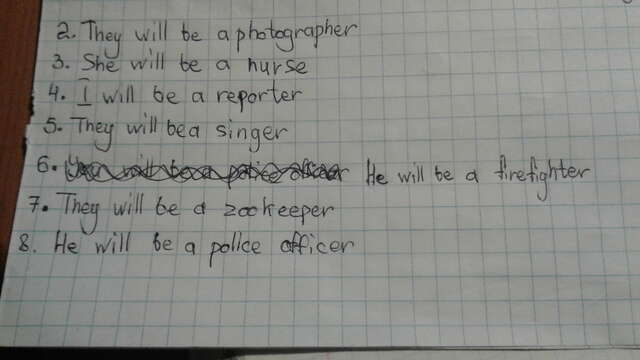 2. They will be a photographer
3. She will be a nurse
4. I will be a reporter
5. They will be a singer
6. He will be a firefighter
7. They will be a zookeeper
8. He will be a police officer